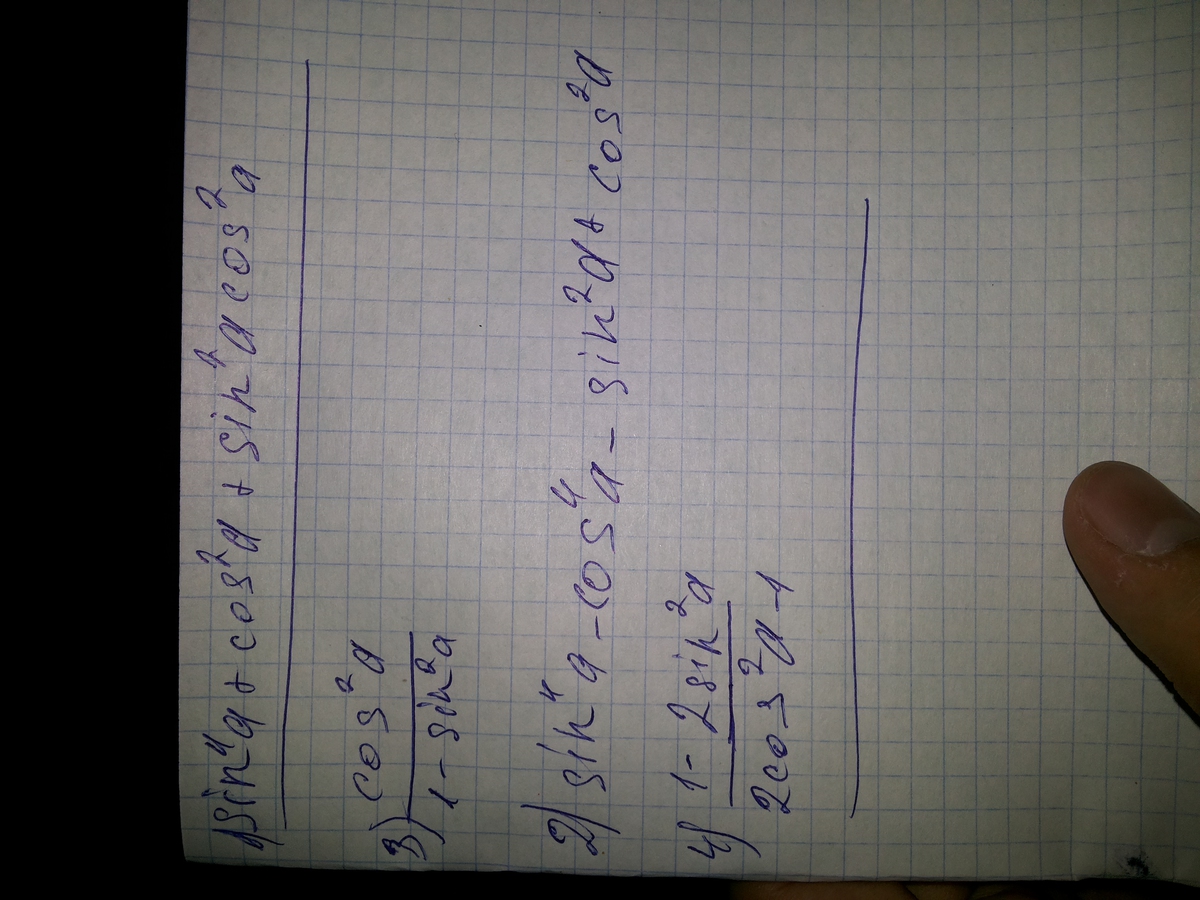 1) sin⁴a + cos²a + sin²a cos²a
3) cos²a / 1 - sin²a
2) sin⁴a - cos⁴a - sin²a + cos²a
4) 1 - 2sin²a / 2cos²a - 1